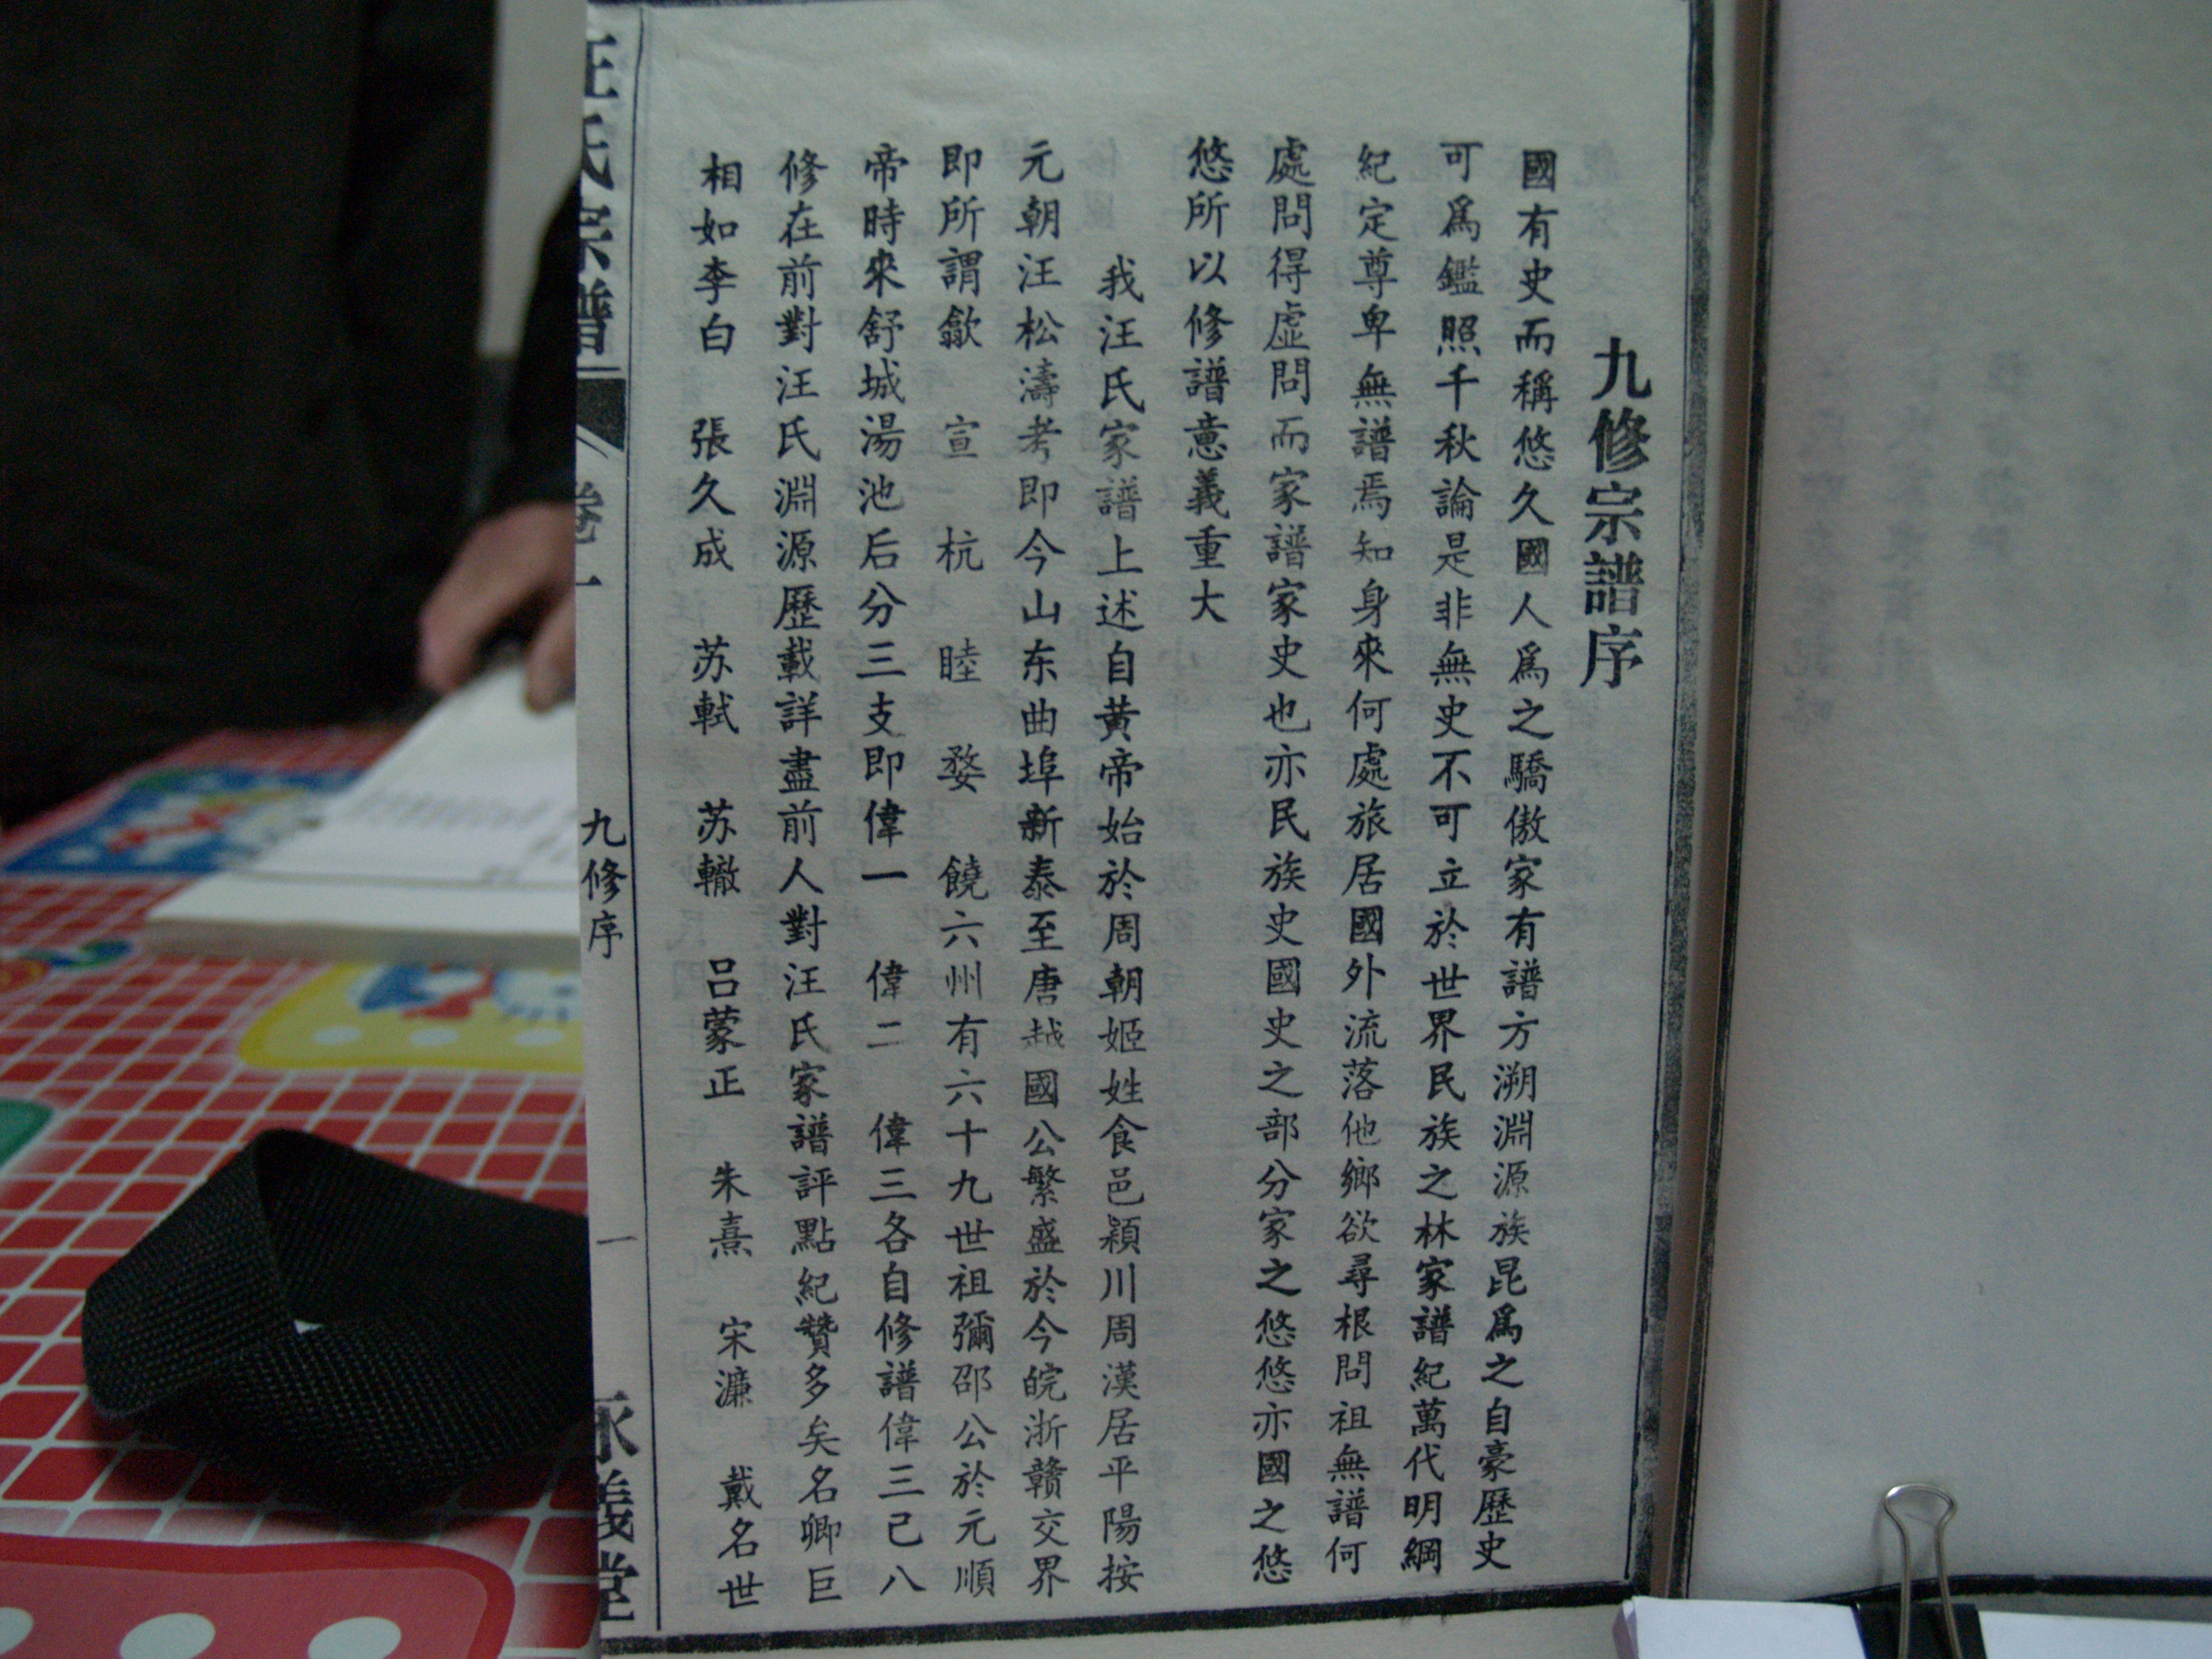 九修宗譜序
國有史而稱悠久國人爲之驕傲家有譜方溯淵源族昆爲之自豪歷史
可爲鑑照千秋論是非無史不可立於世界民族之林家譜紀萬代明綱
紀定尊卑無譜焉知身來何處旅居國外流落他鄉欲尋根問祖無譜何
處問得虛問而家譜家史也亦民族史國史之部分家之悠悠亦國之悠
悠所以修譜意義重大
我汪氏家譜上述自黃帝始於周朝姬姓食邑潁川周漢居平陽按
元朝汪松濤考即今山东曲埠新泰至唐越國公繁盛於今皖浙贛交界
即所謂歙 宣 杭 睦 婺 饒六州有六十九世祖彌邵公於元順
帝時來舒城湯池后分三支即偉一 偉二 偉三各自修譜偉三已八
修在前對汪氏淵源歷載詳盡前人對汪氏家譜評點紀贊多矣名卿巨
相如李白 張久成 苏軾 苏轍 呂蒙正 朱熹 宋濂 戴名世
汪氏宗譜 卷一 九修序 一 永義堂